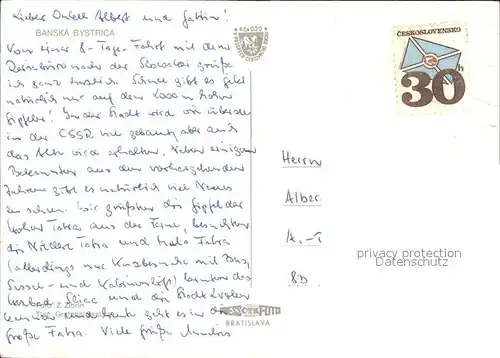 Lieber Onkel Albert und Gattin!
BANSKÁ BYSTRICA
Von einer 8-Tage-Fahrt mit dem
Reisebüro nach der Slovakei grüße
ich ganz herzlich. Schnee gibt es jetzt
natürlich nur auf den 2000 m hohen
Gipfeln! In der Stadt wird wie überall
in der CSSR viel gebaut, aber auch
das Alte wird erhalten. Neben einigem
Bekannten aus den vorhergehenden
Jahren gibt es natürlich viel Neues
zu sehen. Wir grüßten die Gipfel der
Hohen Tatra aus der Ferne, besuchten
die Niedere Tatra und Mala Fatra
(allerdings nur Kurzbesuche mit Bus,
Sessel- und Kabinenlift) lernten das
Heilbad Sliac und die Stadt Zvolen
kennen und heute geht es in die
Große Fatra. Viele Grüße
Foto: Z. Zborín
PRESSFOTO
BRATISLAVA
ČESKOSLOVENSKO
30h
Herrn
Alber
A.-T
8D
privacy protection
Datenschutz